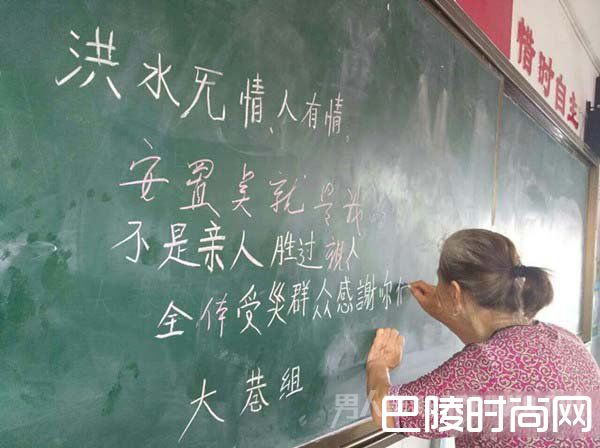 洪水无情、人有情。
安置点就是我的
不是亲人胜过亲人
全体受災群众感謝你们
大巷组
惜时自主
男人
巴陵时尚网